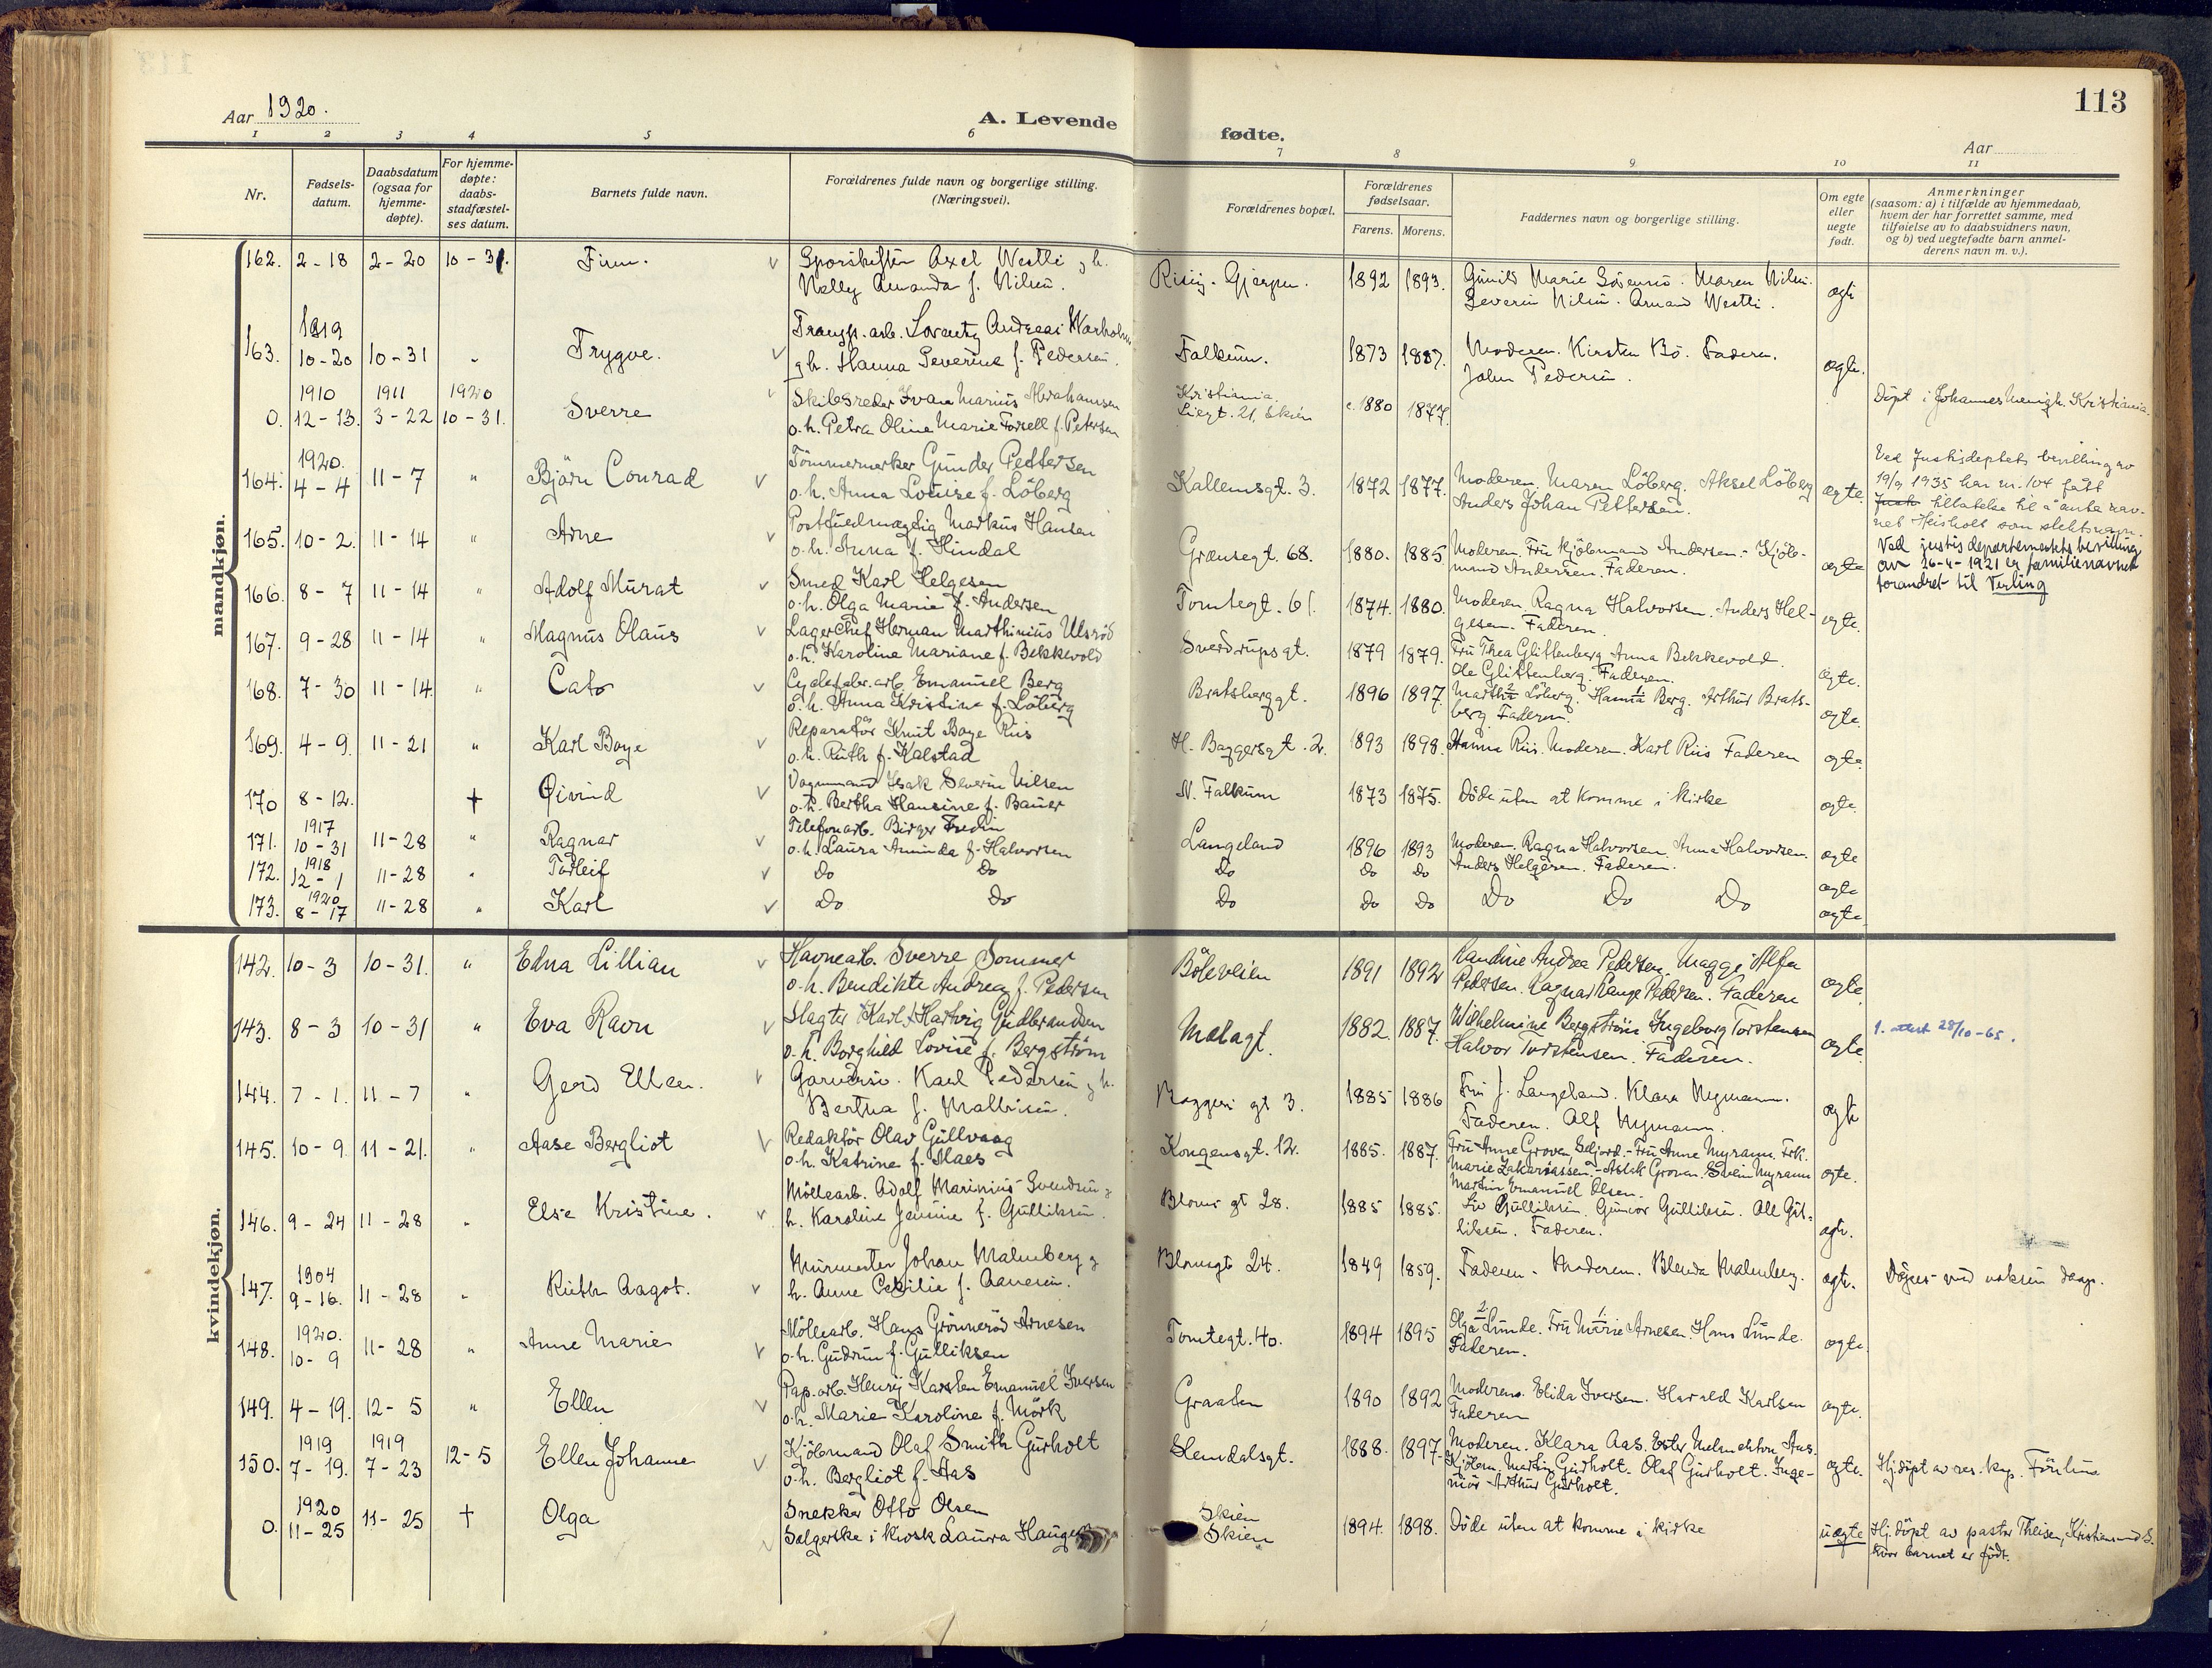 113
Aar 1920.
A. Levende fødte.
Aar
1 2 3 4 5 6 7 8 9 10 11
Nr.
Fødsels-
datum.
Daabsdatum
(ogsaa for
hjemme-
døpte).
For hjemme-
døpte:
daabs-
stadfæstel-
ses datum.
Barnets fulde navn.
Forældrenes fulde navn og borgerlige stilling.
(Næringsvei).
Forældrenes bopæl.
Forældrenes
fødselsaar.
Farens. Morens.
Faddernes navn og borgerlige stilling.
Om egte
eller
uegte
født.
Anmerkninger
(saasom: a) i tilfælde av hjemmedaab,
hvem der har forrettet samme, med
tilføielse av to daabsvidners navn,
og b) ved uegtefødte barn anmel-
derens navn m. v.).
mandkjøn.
162. 2-18 2-20 10-31. Finn. Axel Westli g. h.
Nelly Amanda f. Nilsen. Gjerpen. 1892 1893. Gunild Marie Maren Nilsen.
Severin Nilsen. Westli. egte
163. 1919
10-20 10-31 " Trygve. arb. Lorentz Andreas Warholm
g h. Hanna Severine f. Pedersen. Falkum. 1873 1887. Moderen. Kirsten Bö. Faderen.
John Pedersen. ægte.
0. 1910
12-13. 1911
3-22 1920
10-31. Sverre Skibsreder Ivan Marius Abrahamsen
o. h. Petra Oline Marie Forsell f. Petersen Kristiania.
Liegt. 21, Skien 1880 1877. Döpt i Johannes menigh. Kristiania.
164. 1920.
4-4 11-7 " Björn Conrad Tömmermerker Gunder Pettersen
o. h. Anna Lovise f. Löberg Kallemsgt. 3. 1872 1877. Moderen. Maren Löberg. Aksel Löberg
Anders Johan Pettersen. ægte
Ved Justisdeptets bevilling av
19/9 1935 har nr. 104 fått
tillatelse til å anta nav-
net Heisholt som slektsnavn.
165. 10-2. 11-14 " Arne Postfuldmægtig Markus Hansen
o. h. Anna f. Hindal Grænsegt. 68. 1880. 1885. Moderen. Fru kjöbmand Andersen. - Kjöb-
mand Andersen. Faderen. ægte
Ved justisdepartementets bevilling
av 26-4-1921 er familienavnet
forandret til Verling
166. 8-7 11-14 " Adolf Murat Smed Karl Helgesen
o. h. Olga Marie f. Andersen Tomtegt. 61. 1874. 1880. Moderen. Ragna Halvorsen. Anders Hel-
gesen. Faderen. ægte.
167. 9-28 11-14 " Magnus Olaus Lagerchef Herman Marthinius Ulsröd
o. h. Karoline Mariane f. Bekkevold Sverdrupsgt. 1879 1879. Fru Thea Glittenberg. Anna Bekkevold.
Ole Glittenberg. Faderen. ægte.
168. 7-30 11-14. " Cato Cyclefabr. arb. Emanuel Berg
o. h. Anna Kristine f. Löberg Bratsberggt. 1896 1897. Löberg. Hanna Berg. Arthur Brats-
berg. Faderen. ægte.
169. 4-9. 11-21 " Karl Boye Reparatör Knut Boye Riis
o. h. Ruth f. Kalstad H. Baggersgt. 2. 1893 1898. Hanna Riis. Moderen. Karl Riis Faderen ægte.
170 8-12. + Öivind Vognmand Isak Severin Nilsen
o. h. Bertha Hansine f. Bauer N. Falkum 1873 1875. Döde uten at komme i kirke ægte.
171. 1917
10-31 11-28 " Ragnar Telefonarb. Birger Fredin
o. h. Laura Aminda f. Halvorsen Langeland 1896 1893 Moderen. Ragna Halvorsen. Anna Halvorsen.
Anders Helgesen. Faderen. ægte
172. 1918
12-1 11-28 " Torleif Do Do Do Do Do ægte
173. 1920
8-17 11-28 " Karl Do Do Do Do Do Do Do Do ægte
kvindekjøn.
142. 10-3 10-31. " Edna Lillian Havnearb. Sverre Sommer
o. h. Bendikte Andrea f. Pedersen Böleveien 1891 1892 Randine Andrea Pedersen. Magge Alfa
Pedersen. Ragnar Lange Pedersen. Faderen ægte
143. 8-3 10-31 " Eva Ravn Slagter (Karl) Hartvig Gudbrandsen
o. h. Borghild Lovise f. Bergström Mælagt. 1882. 1887. Wilhelmine Bergström Ingeborg Torstensen
Halvor Torstensen. Faderen. ægte. 1. attest 28/10-65.
144. 7-1. 11-7 " Gerd Ellen. Karl Pedersen g h.
Bertha f. Mathisen. Baggers gt 3. 1885 1886 Fru J. Langeland. Klara Nymann.
Faderen. Alf Nymann. ægte
145. 10-9. 11-21. " Aase Bergliot Redaktör Olav Gullvaag
o. h. Katrine f. Maes Kongensgt. 12. 1885. 1887. Fru Anne Groven, Seljord. - Fru Anne Myrann. Frk.
Marie Zakariassen. - Aslak Groven. Svein Myrann
Martin Emanuel Olsen. ægte.
146. 9-24 11-28 " Else Kristine. Möllearb. Adolf Marinius Svendsen g
h. Karoline Jennie f. Gulliksen. Bloms gt 28. 1885 1885. Gulliksen. Gunvor Gulliksen. Gul-
liksen. Faderen. ægte.
147. 1904
9-16. 11-28 " Ruth Aagot. Murmester Johan Malmberg g
h. Anne Cecilie f. Aanesen. Blomsgt 24. 1849 1859. Faderen - Moderen. Blenda Malmberg. ægte. Döpes ved voksen daap.
148. 1920.
10-9 11-28 " Anne Marie Möllearb. Hans Grönneröd Arnesen
o. h. Gudrun f. Gulliksen Tomtegt. 40. 1894 1895 Olga Lunde. Fru Marie Arnesen. Hans Lunde.
Faderen. ægte.
149. 4-19. 12-5 " Ellen Pap. arb. Henry Karsten Emanuel Iversen
o. h. Marie Karoline f. Mörk Graaten 1890 1892 Moderen. Elida Iversen. Harald Karlsen
Faderen ægte.
150. 1919
7-19. 1919
7-23 12-5 Ellen Johanne Kjöbmand Olaf Smith Gurholt
o. h. Bergliot f. Aas Slemdalsgt. 1888. 1897. Moderen. Klara Aas. Ester Melnekton Aas.
Kjöbm. Martin Gurholt. Olaf Gurholt. Inge-
niör Arthur Gurholt. ægte. Hj. döpt av res. kap.
0. 1920
11-25 11-25 + Olga Snekker Otto Olsen
Selgerske i kiosk Laura Haugen Skien
Skien 1894. 1898. Döde uten at komme i kirke uægte Hj. döpt av pastor Theisen, Kristiansund S.
hvor barnet er født.